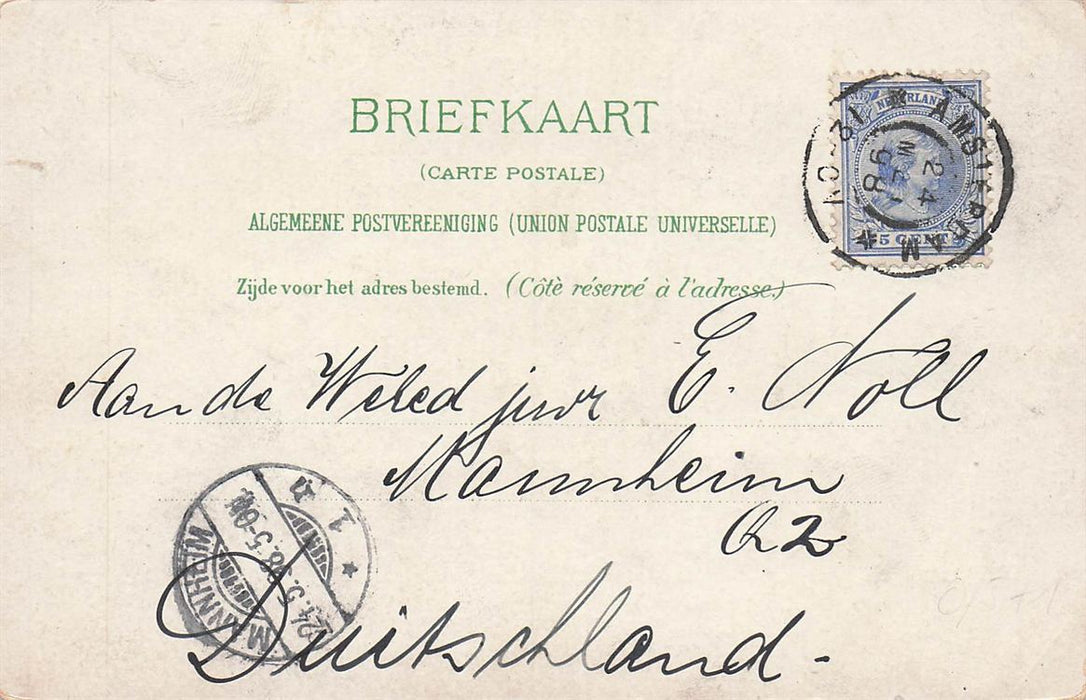 BRIEFKAART
(CARTE POSTALE)
ALGEMEENE POSTVEREENIGING (UNION POSTALE UNIVERSELLE)
Zijde voor het adres bestemd. (Côtè réservé à l'adresse.)
NEDERLAND
5 CENT
AMSTERDAM
24 MEI 98
Aan de Weled juvr E. Noll
Mannheim
Q2
Duitschland.
MANNHEIM
24.5.98.5-6N
1